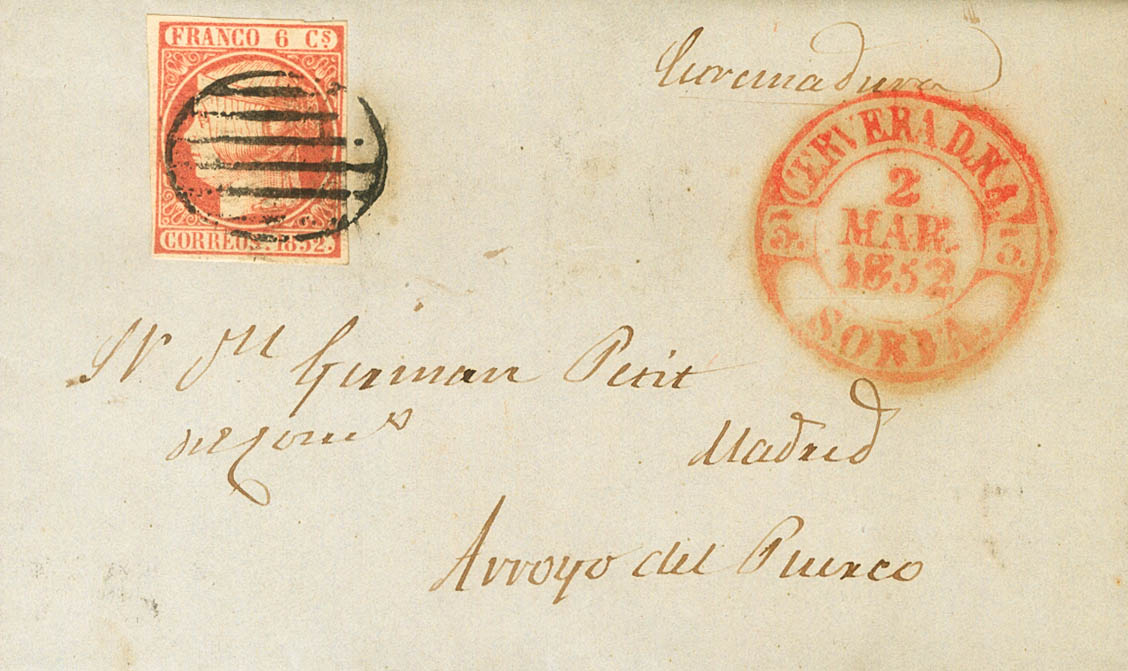 FRANCO 6 Cs
CORREOS. 1852.
Extremadura
CERVERA D.R.A.
2
MAR.
1852
SORIA.
Sr Dn German Petit
Madrid
Arroyo del Puerco